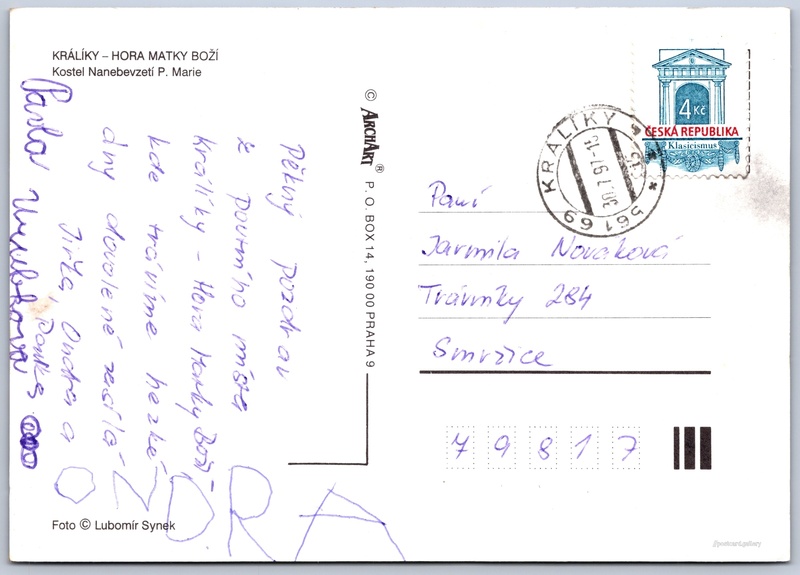 KRÁLÍKY – HORA MATKY BOŽÍ
Kostel Nanebevzetí P. Marie
Pěkný pozdrav
z poutního místa
Králíky – Hora Matky Boží
kde trávíme hezké
dny dovolené zasílá
Jirka, Ondra a
Pavla
© ARCHART® P. O. BOX 14, 190 00 PRAHA 9
4 Kč
ČESKÁ REPUBLIKA
Klasicismus
KRÁLÍKY
30.7.97-14
561 69
Paní
Jarmila Nováková
Trávníky 284
Smržice
79817
Foto © Lubomír Synek